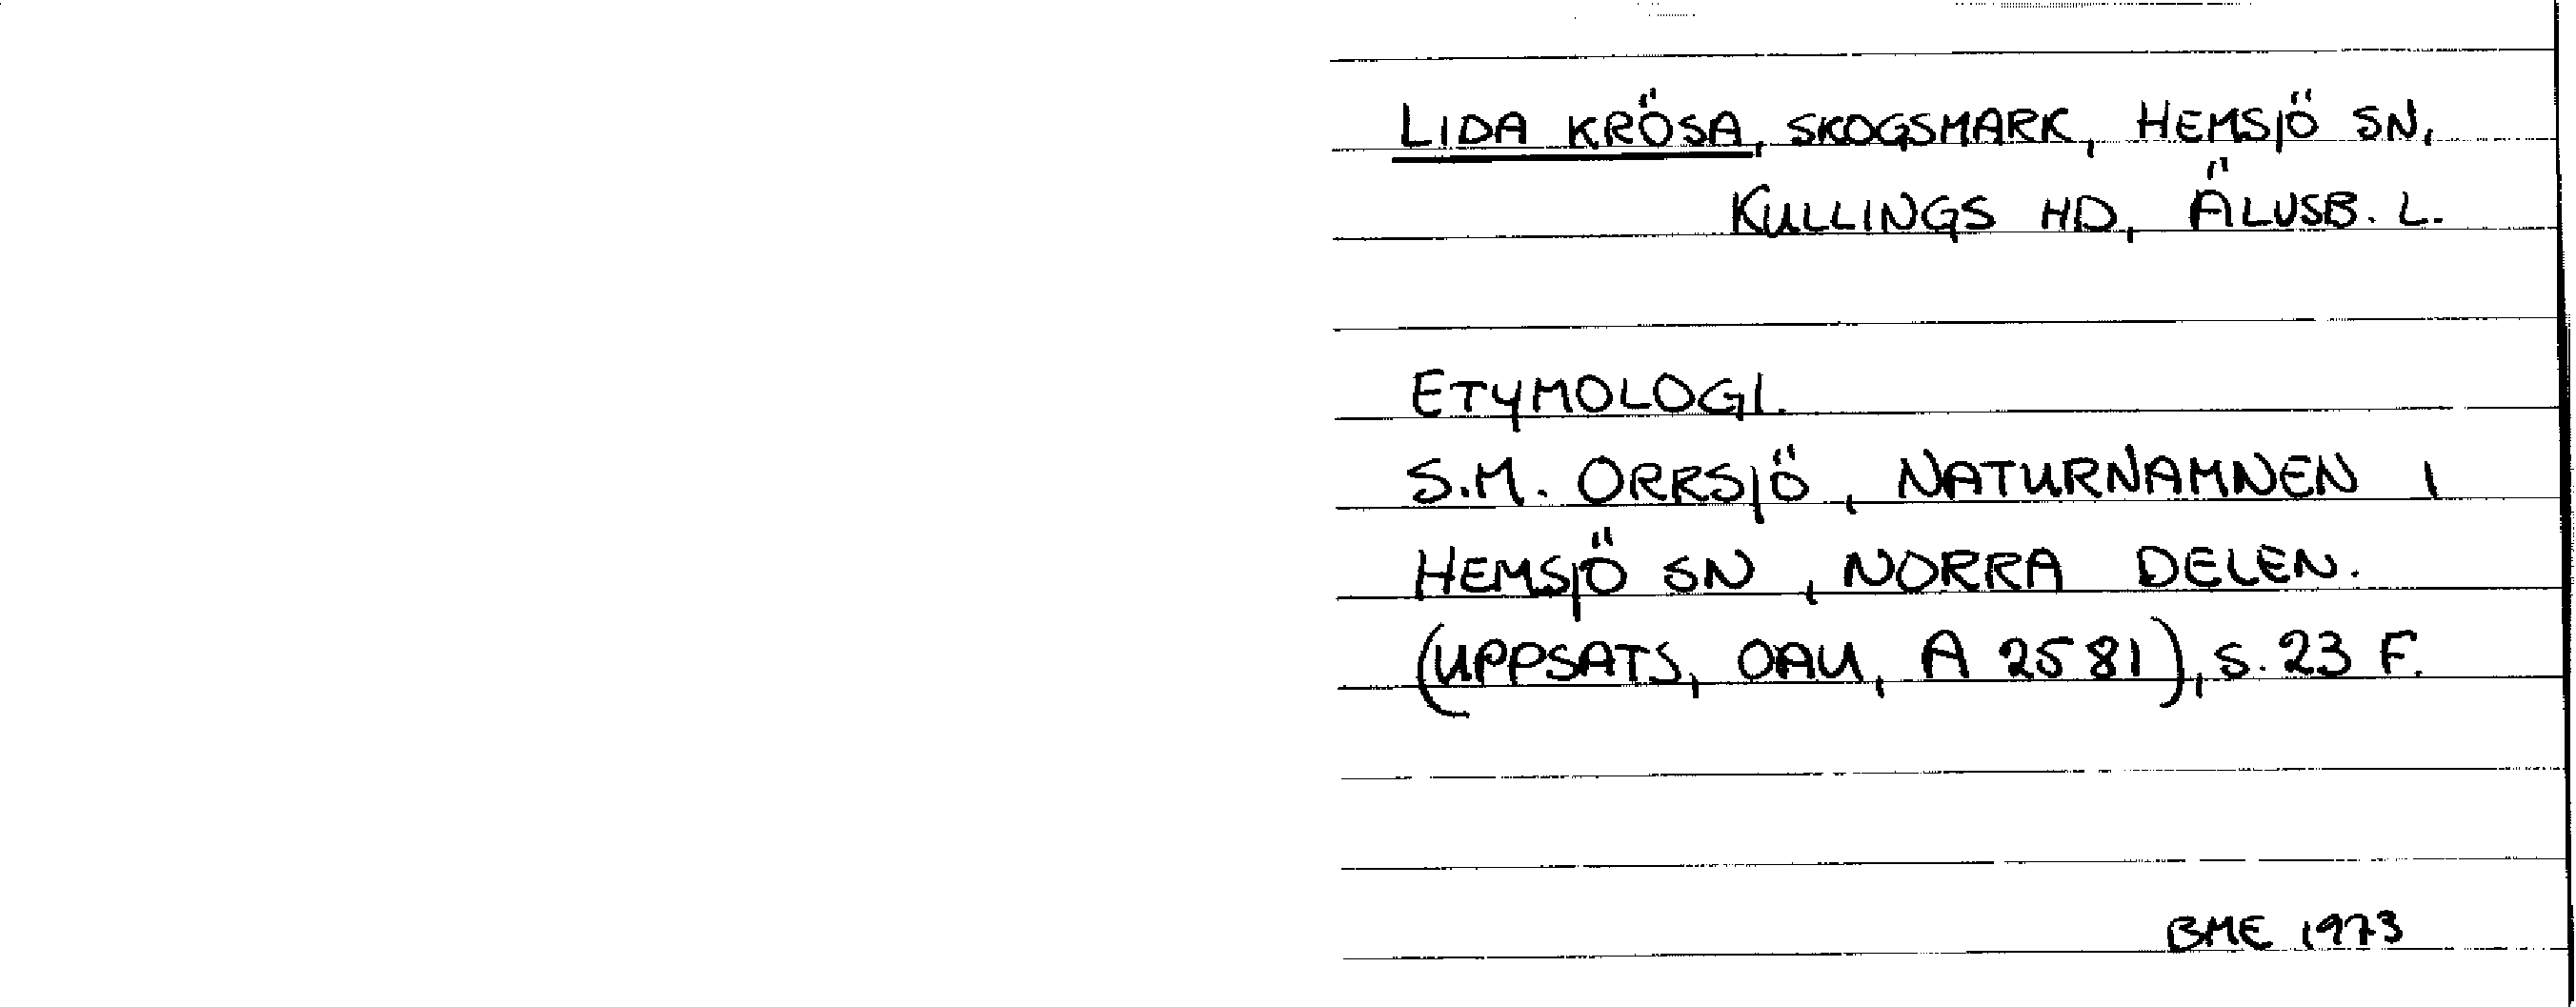 LIDA KRÖSA, SKOGSMARK, HEMSJÖ SN,
KULLINGS HD, ÄLVSB. L.
ETYMOLOGI.
S.M. ORRSJÖ, NATURNAMNEN I
HEMSJÖ SN, NORRA DELEN.
(UPPSATS, OAU, A 2581), S. 23 F.
BME 1973